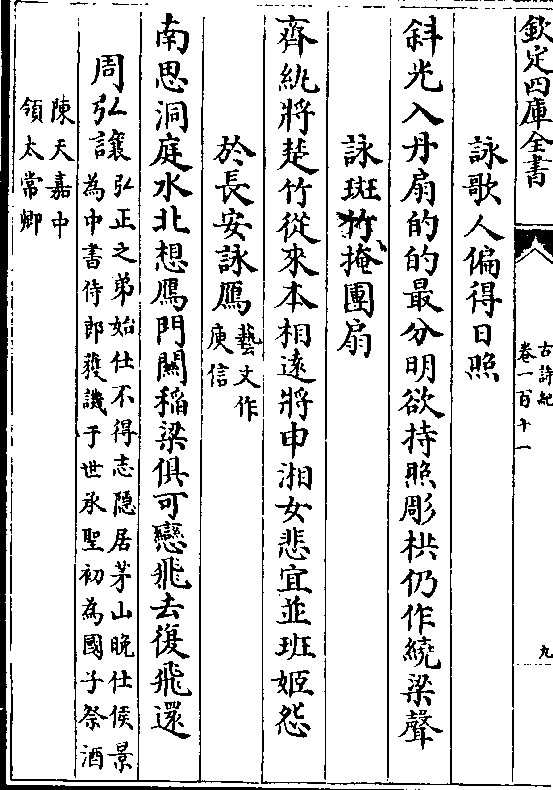 欽定四庫全書
古詩紀
卷一百十一
九
詠歌人偏得日照
斜光入丹扇的的最分明欲持照彫栱仍作繞梁聲
詠班竹掩團扇
齊紈將楚竹從來本相遠將申湘女悲宜並班姬怨
於長安詠鴈藝文作
庾信
南思洞庭水北想鴈門關稻粱俱可戀飛去復飛還
周弘讓弘正之弟始仕不得志隐居茅山晚仕侯景
為中書侍郎獲譏于世承聖初為國子祭酒
陳天嘉中
領太常卿